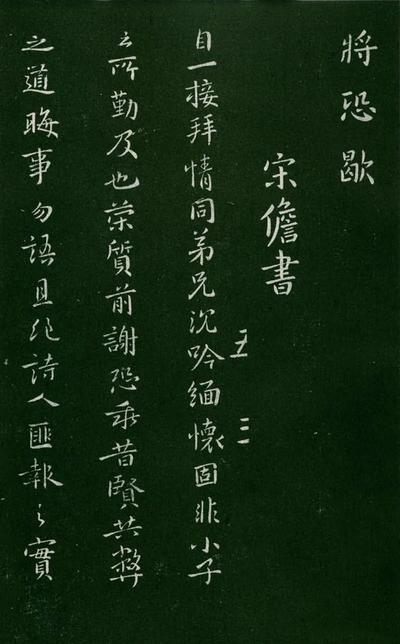 將恐歇
宋儋書
五 三
自一接拜情同弟兄沉吟緬懷固非小子
之所勤及也榮質前謝恐乖昔賢共弊
之道晦事勿語且絕詩人匪報之實